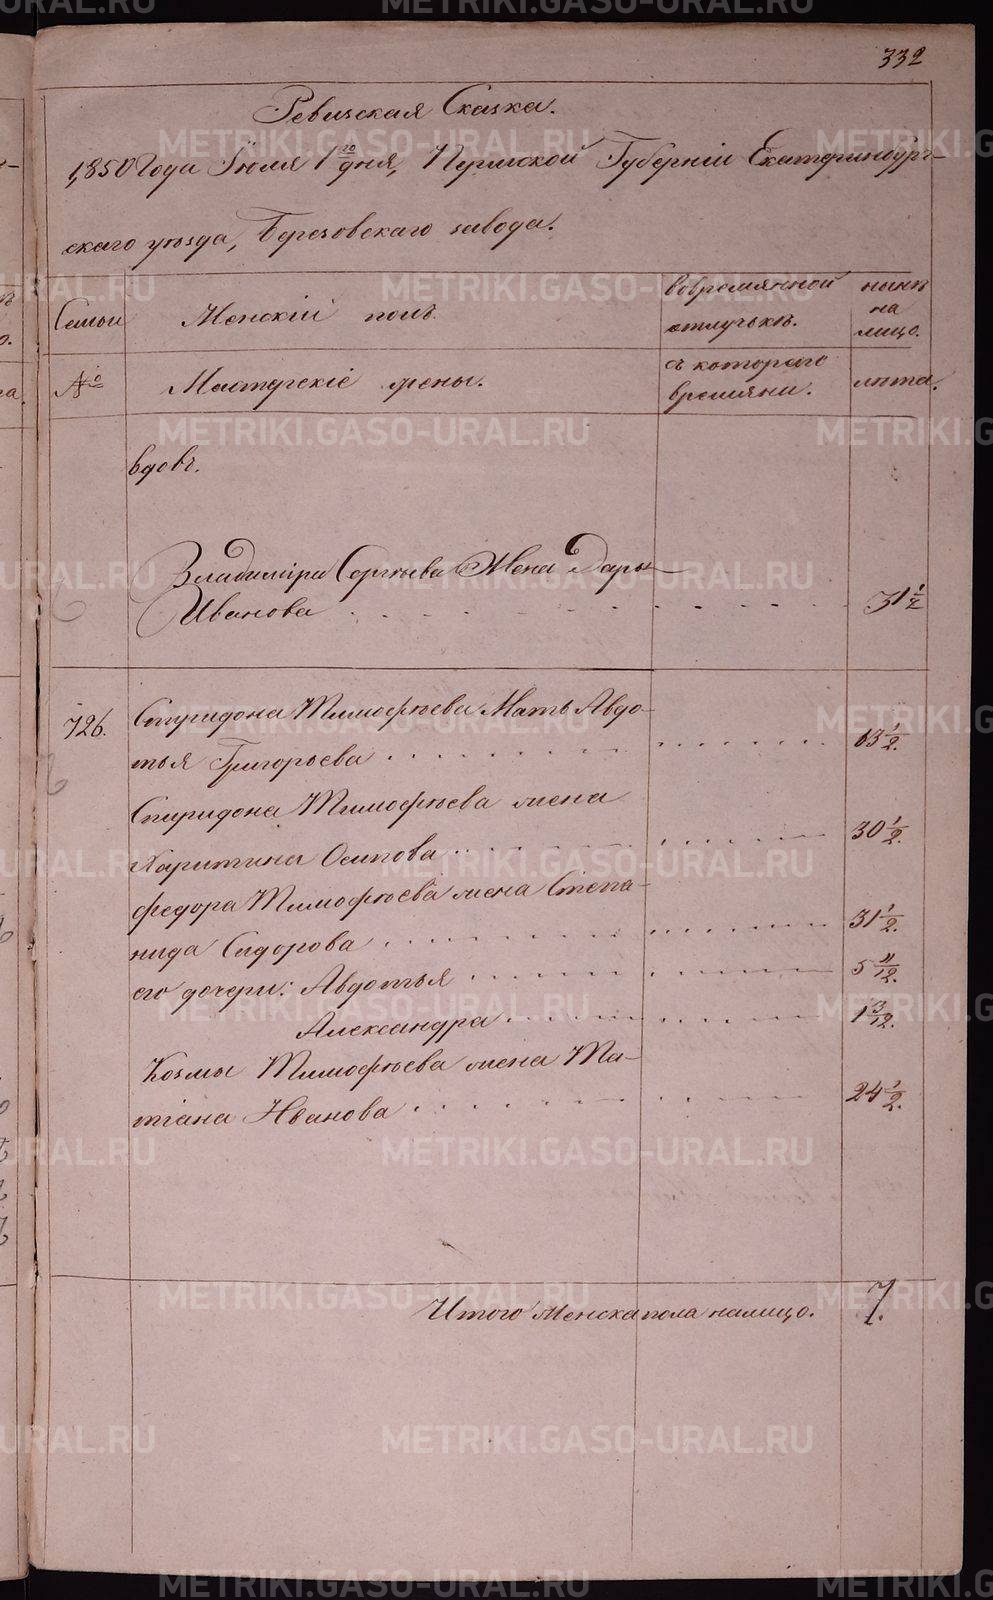 332
Ревизская Сказка.
1850 Года Іюля 1го дня, Пермской Губерніи Екатеринбург-
скаго уѣзда, Березовскаго завода.
Семьи Женскій полъ вовремянной отлучькѣ. нынѣ на лицо.
№ Мастерскіе жены. съ котораго времяни. лѣта.
вдовъ.
Владиміра Сергѣева Жена Дарья
Иванова 31 1/2
726. Спиридона Тимофѣева Мать Авдо-
тья Григорьева 63 1/2.
Спиридона Тимофѣева жена
Харитина Осипова 30 1/2.
Федора Тимофѣева жена Степа-
нида Сидорова 31 1/2.
его дочери: Авдотья 5 11/12.
Александра 1 3/12.
Козмы Тимофѣева жена Та-
тіана Иванова 24 1/2.
Итого Женска пола налицо. 7.
METRIKI.GASO-URAL.RU